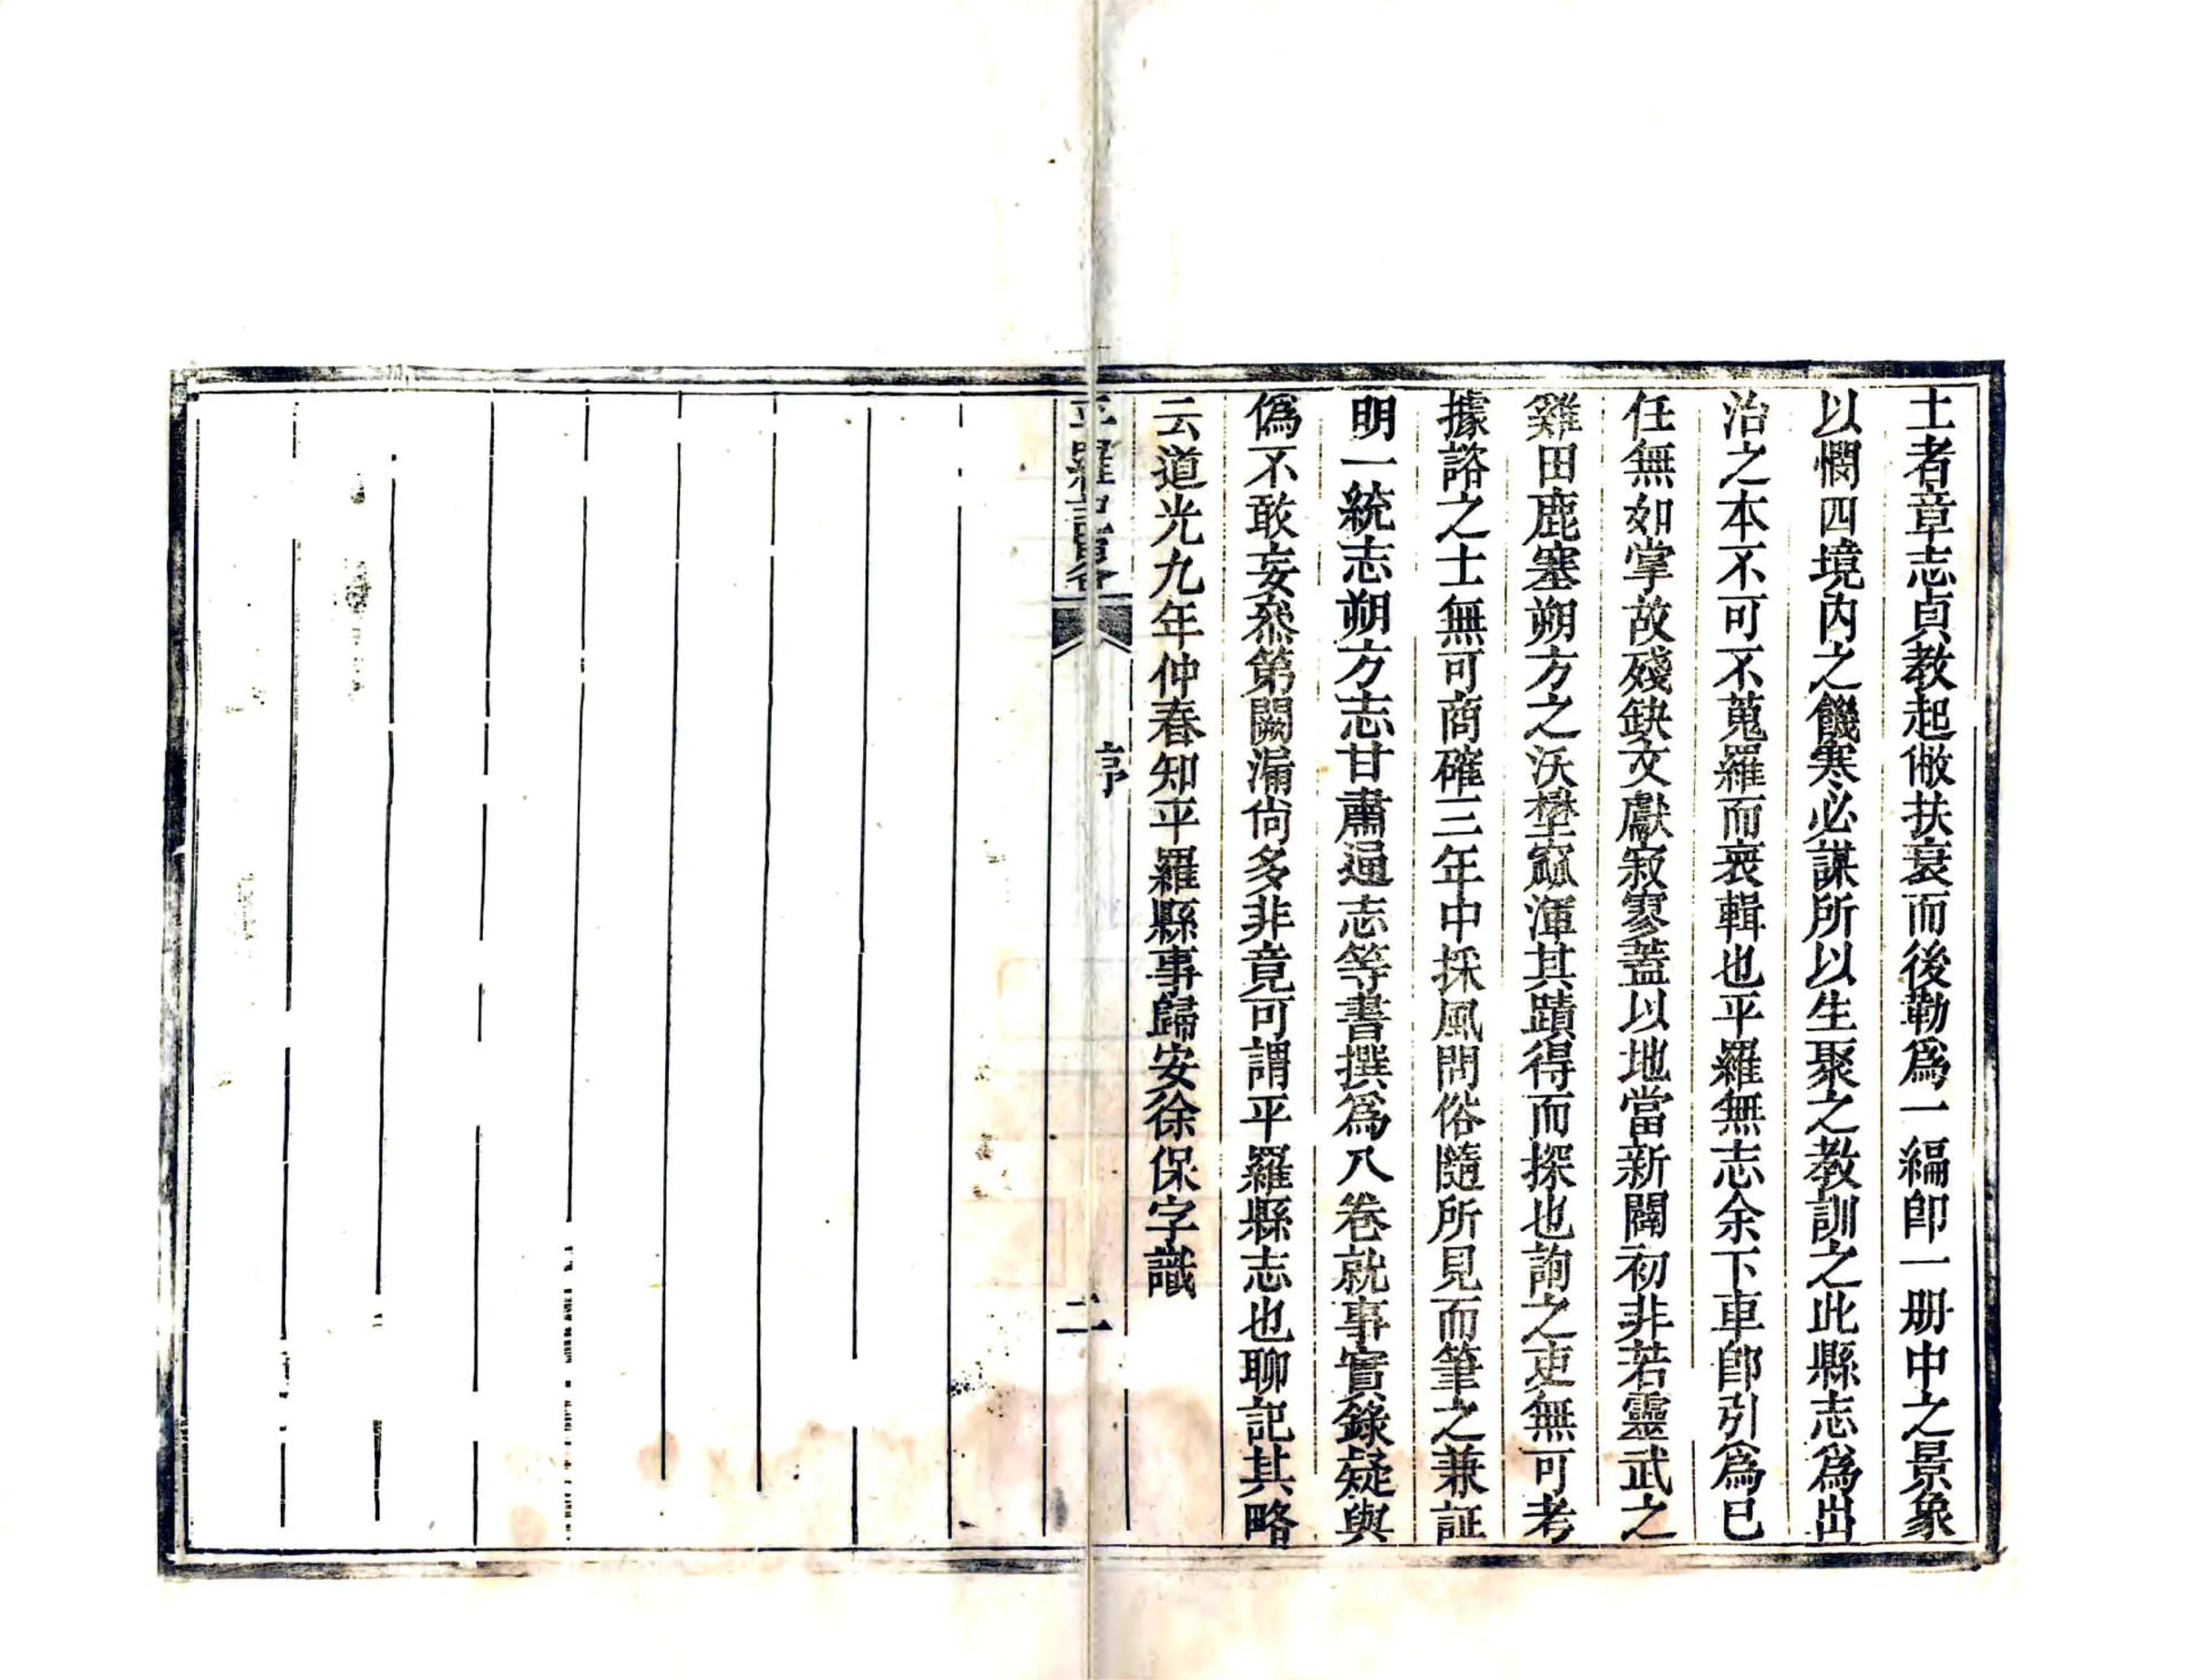 土者章志貞教起敝扶衰而後勒爲一編卽一册中之景象
以憫四境内之饑寒必謀所以生聚之教訓之此縣志爲出
治之本不可不蒐羅而裒輯也平羅無志余下車卽引爲已
任無如掌故殘缺文獻寂寥蓋以地當新闢初非若靈武之
雞田鹿塞朔方之沃壄窳渾其蹟得而探也詢之吏無可考
據諮之士無可商確三年中採風問俗隨所見而筆之兼証
明一統志朔方志甘肅通志等書撰爲八卷就事實錄疑與
僞不敢妄叅第闕漏尙多非竟可謂平羅縣志也聊記其略
云道光九年仲春知平羅縣事歸安徐保字識
平羅記畧
序
二